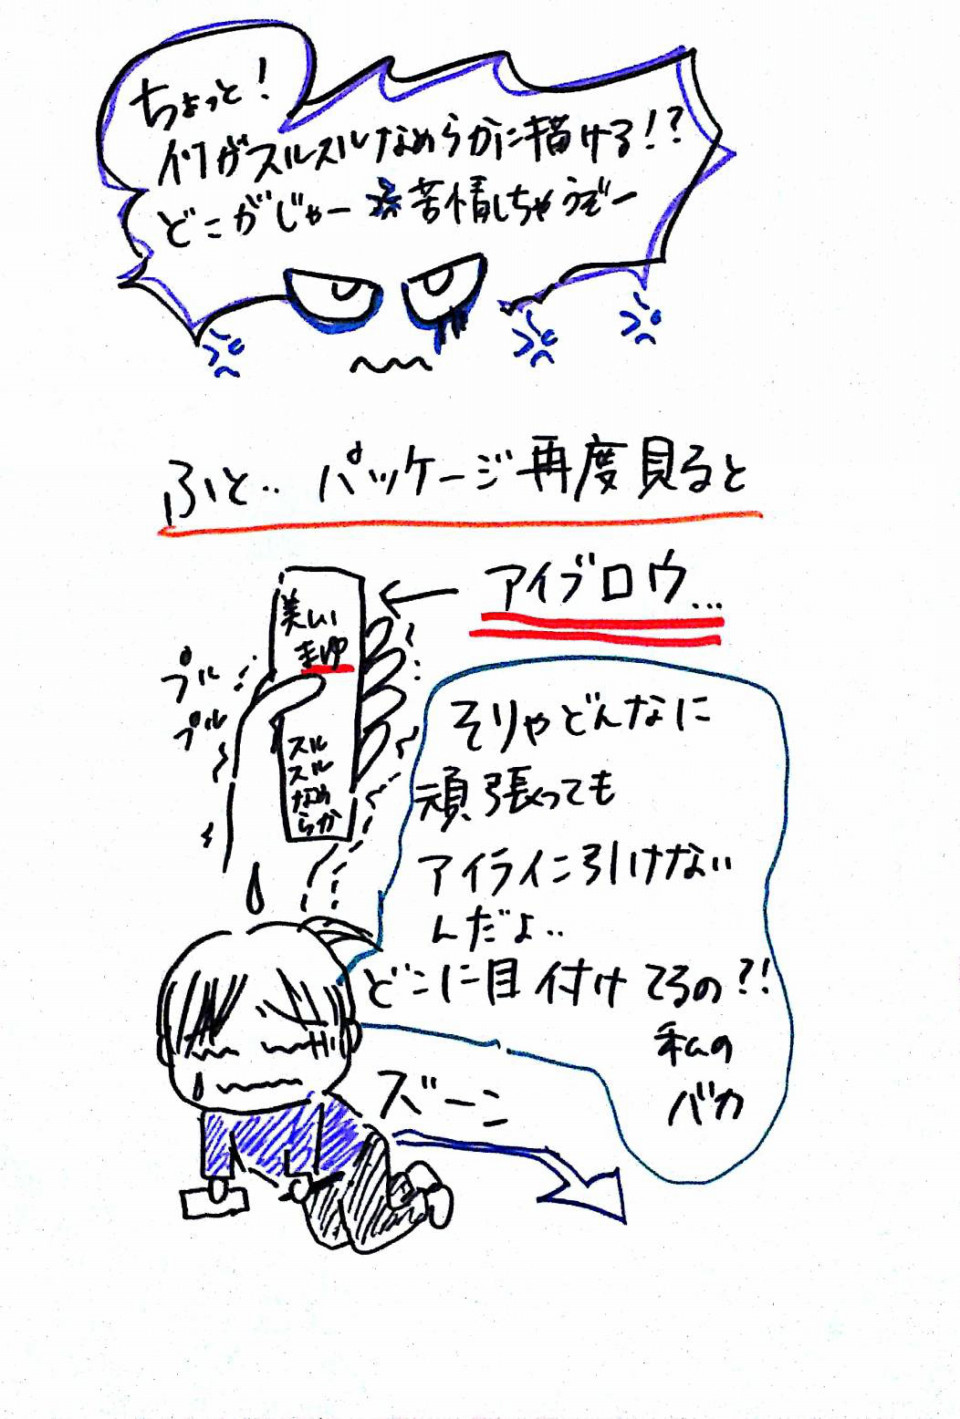 ちょっと!
何がスルスルなめらかに描ける!?
どこがじゃー 苦情しちゃうぞー
ふと.. パッケージ再度見ると
アイブロウ...
美しい
まゆ
スル
スル
なめ
らか
プル
プル
そりゃどんなに
頑張っても
アイライン引けない
んだよ..
どこに目付けてるの?!
私の
バカ
ズーン